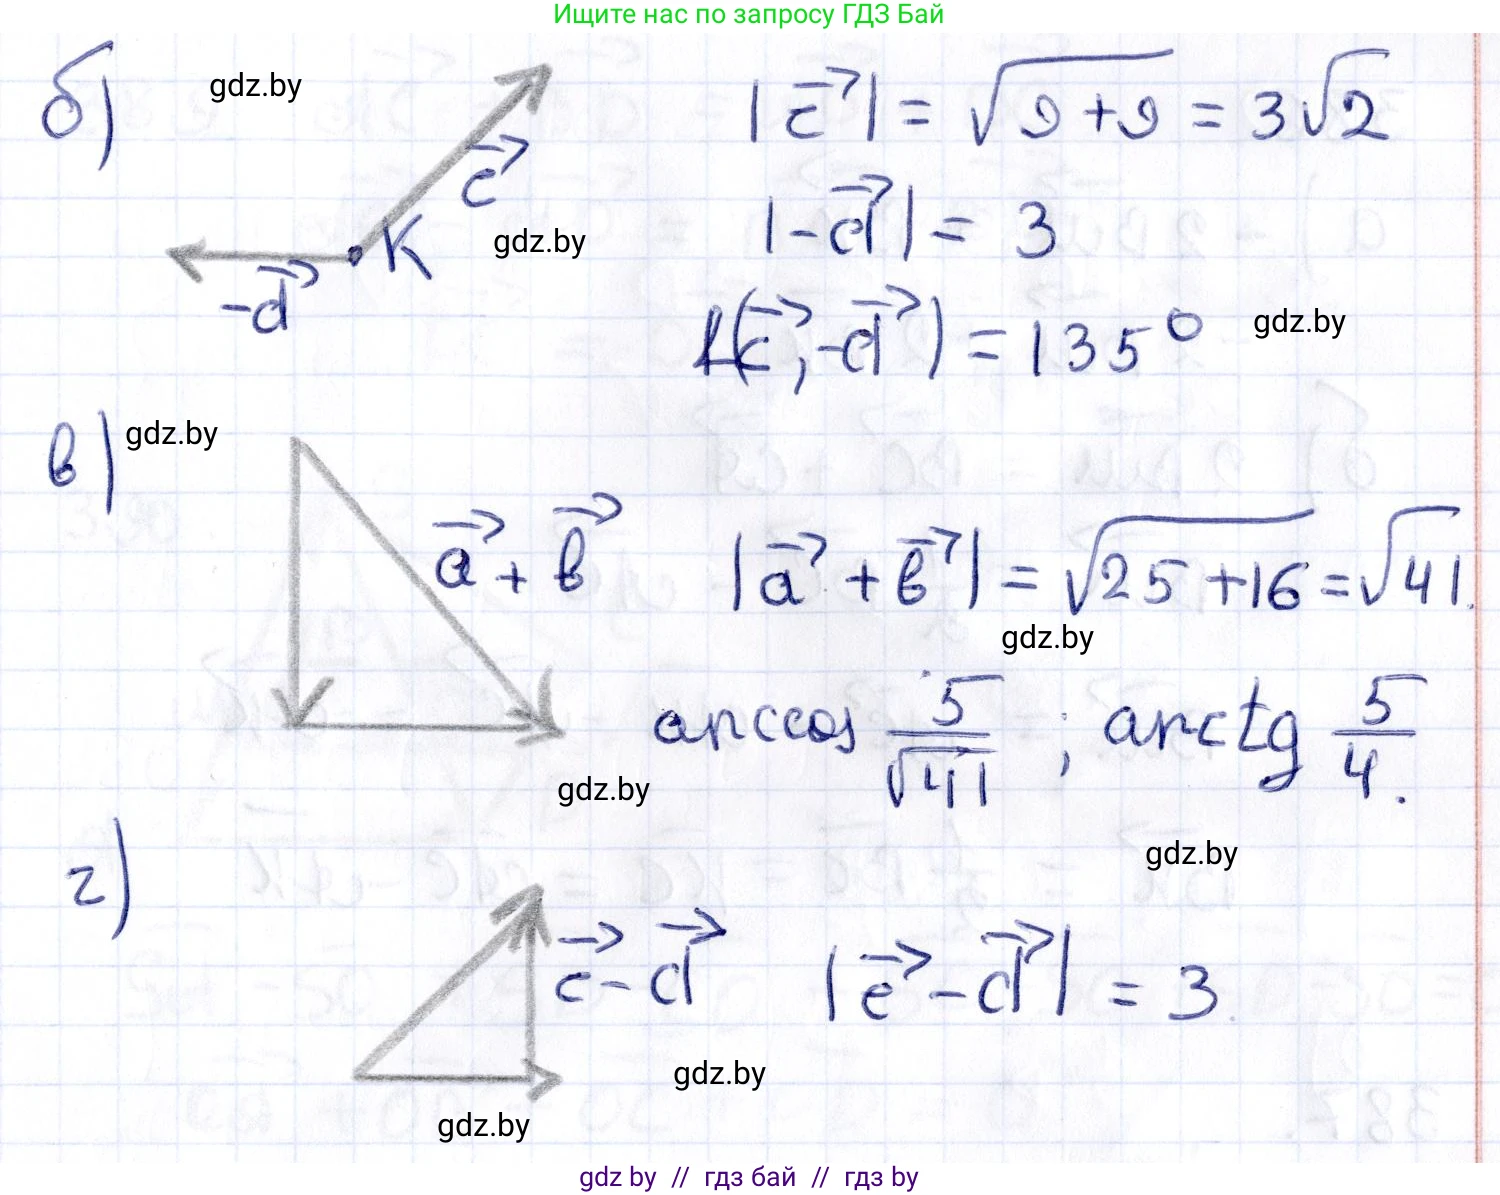 Ищите нас по запросу ГДЗ Бай
б) gdz.by |c⃗| = √(9+9) = 3√2
c⃗
K gdz.by |-d⃗| = 3
-d⃗
∠(c⃗, -d⃗) = 135° gdz.by
в) gdz.by
a⃗ + в⃗ |a⃗ + в⃗| = √(25+16) = √41.
gdz.by
arccos 5/√41 ; arctg 5/4.
gdz.by
gdz.by
г)
c⃗ - d⃗ |c⃗ - d⃗| = 3.
gdz.by
gdz.by
gdz.by // гдз бай // гдз by